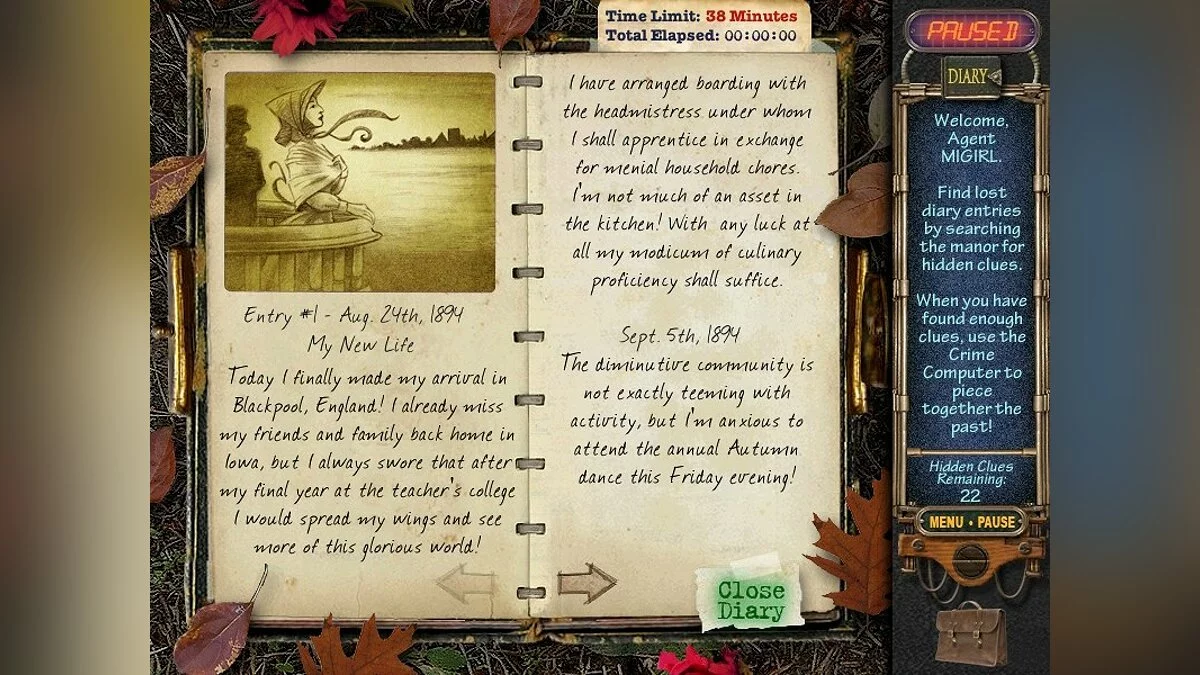 Time Limit: 38 Minutes
Total Elapsed: 00:00:00
Entry #1 - Aug. 24th, 1894
My New Life
Today I finally made my arrival in
Blackpool, England! I already miss
my friends and family back home in
Iowa, but I always swore that after
my final year at the teacher's college
I would spread my wings and see
more of this glorious world!
I have arranged boarding with
the headmistress under whom
I shall apprentice in exchange
for menial household chores.
I'm not much of an asset in
the kitchen! With any luck at
all my modicum of culinary
proficiency shall suffice.
Sept. 5th, 1894
The diminutive community is
not exactly teeming with
activity, but I'm anxious to
attend the annual Autumn
dance this Friday evening!
Close
Diary
PAUSED
DIARY
Welcome,
Agent
MIGIRL.
Find lost
diary entries
by searching
the manor for
hidden clues.
When you have
found enough
clues, use the
Crime
Computer to
piece
together the
past!
Hidden Clues
Remaining:
22
MENU • PAUSE